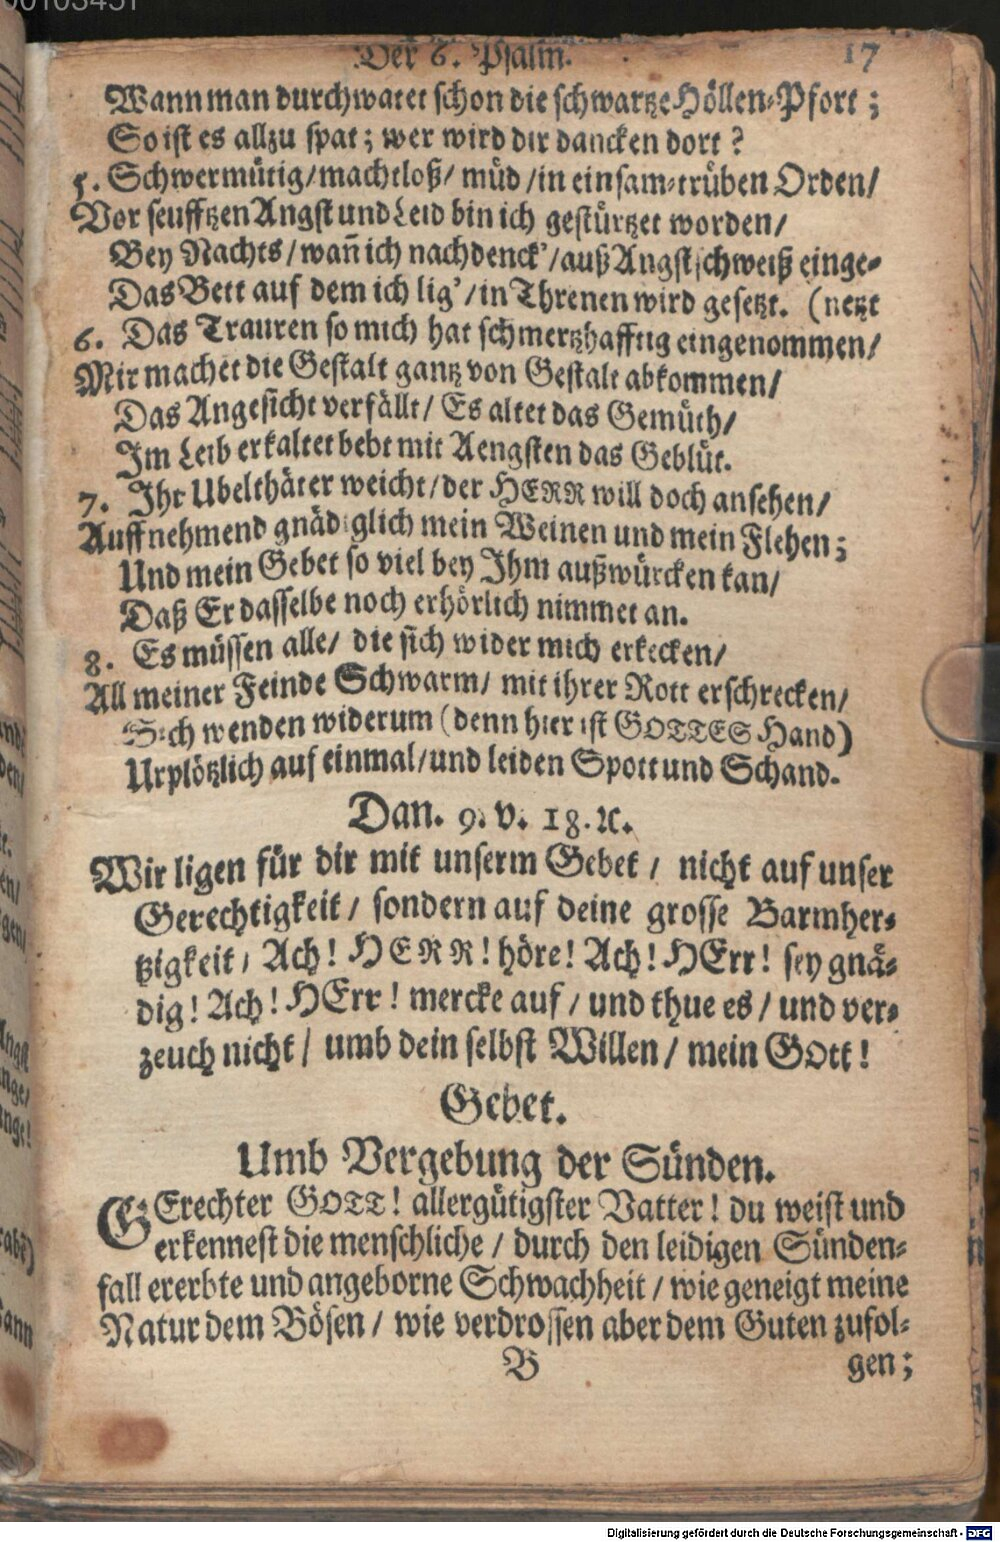 Der 6. Psalm. 17
Wann man durchwatet schon die schwartze Höllen-Pfort;
So ist es allzu spat; wer wird dir dancken dort?
5. Schwermütig/ machtloß/ müd/ in einsam-trüben Orden/
Vor seufftzen Angst und Leid bin ich gestürtzet worden/
Bey Nachts/ wañ ich nachdenck'/ auß Angstschweiß einge-
Das Bett auf dem ich lig'/ in Threnen wird gesetzt. (netzt
6. Das Trauren so mich hat schmertzhafftig eingenommen/
Mir machet die Gestalt gantz von Gestalt abkommen/
Das Angesicht verfällt/ Es altet das Gemüth/
Im Leib erkaltet bebt mit Aengsten das Geblüt.
7. Ihr Ubelthäter weicht/ der HERR will doch ansehen/
Auffnehmend gnädiglich mein Weinen und mein Flehen;
Und mein Gebet so viel bey Ihm außwürcken kan/
Daß Er dasselbe noch erhörlich nimmet an.
8. Es müssen alle/ die sich wider mich erkecken/
All meiner Feinde Schwarm/ mit ihrer Rott erschrecken/
Sich wenden widerum (denn hier ist GOTTES Hand)
Urplötzlich auf einmal/ und leiden Spott und Schand.
Dan. 9. v. 18. ꝛc.
Wir ligen für dir mit unserm Gebet/ nicht auf unser
Gerechtigkeit/ sondern auf deine grosse Barmher-
tzigkeit/ Ach! HERR! höre! Ach! HErr! sey gnä-
dig! Ach! HErr! mercke auf/ und thue es/ und ver-
zeuch nicht/ umb dein selbst Willen/ mein GOtt!
Gebet.
Umb Vergebung der Sünden.
GErechter GOTT! allergütigster Vatter! du weist und
erkennest die menschliche/ durch den leidigen Sünden-
fall ererbte und angeborne Schwachheit/ wie geneigt meine
Natur dem Bösen/ wie verdrossen aber dem Guten zufol-
B gen;
Digitalisierung gefördert durch die Deutsche Forschungsgemeinschaft - DFG